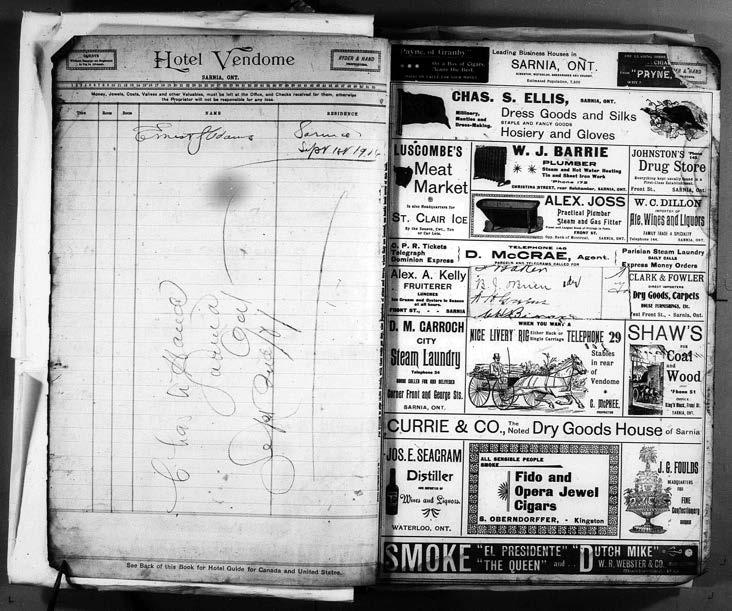 Hotel Vendome
SARNIA, ONT.
RYDER & HAND
Money, Jewels, Coats, Valises and other Valuables, must be left at the Office, and Checks received for them, otherwise
the Proprietor will not be responsible for any loss.
Time Room Room NAME RESIDENCE
Sarnia
Sept 1st
Chas
Sarnia
Ont
Sept
See Back of this Book for Hotel Guide for Canada and United States.
Payne, of Granby
Leading Business Houses in
SARNIA, ONT.
"PAYNE,
RYDER & HAND
CHAS. S. ELLIS, SARNIA, ONT.
Millinery,
Mantles and
Dress-Making.
Dress Goods and Silks
STAPLE AND FANCY GOODS
Hosiery and Gloves
LUSCOMBE'S
Meat
Market
Is also Headquarters for
ST. CLAIR ICE
By the Season, Cwt., Ton
or Car Lots.
W. J. BARRIE
PLUMBER
Steam and Hot Water Heating
Tin and Sheet Iron Work
Phone 172
CHRISTINA STREET, near Holehamber, SARNIA, ONT.
JOHNSTON'S
Drug Store
Everything usually found in a
First-Class Establishment.
Front St., SARNIA, Ont.
ALEX. JOSS
Practical Plumber
Steam and Gas Fitter
FRONT ST.
Opp. Bank of Montreal, SARNIA, ONT.
W. C. DILLON
IMPORTER OF
Ale, Wines and Liquors
FAMILY TRADE A SPECIALTY
Telephone 144. SARNIA, ONT.
C. P. R. Tickets
Telegraph
Dominion Express
TELEPHONE 148
D. McCRAE, Agent.
PARCELS AND TELEGRAMS CALLED FOR
Parisian Steam Laundry
DAILY CALLS
Express Money Orders
Alex. A. Kelly
FRUITERER
LUNCHES
Ice Cream and Oysters in Season
at all hours.
FRONT ST., - - SARNIA
B. J. O'Brien
CLARK & FOWLER
DIRECT IMPORTERS
Dry Goods, Carpets
HOUSE FURNISHINGS, Etc.
Front St., - Sarnia, Ont.
D. M. CARROCH
CITY
Steam Laundry
Telephone 34
GOODS CALLED FOR AND DELIVERED
Corner Front and George Sts.
SARNIA, ONT.
WHEN YOU WANT A
NICE LIVERY RIG Either Hack or
Single Carriage TELEPHONE 29
Stables
in rear
of
Vendome
C. McPHEE,
PROPRIETOR
SHAW'S
FOR
Coal
and
Wood
'Phone 51
OFFICE:
King's Block, Front St.
SARNIA, ONT.
CURRIE & CO., The Noted Dry Goods House of Sarnia
JOS. E. SEAGRAM
Distiller
AND IMPORTER OF
Wines and Liquors.
WATERLOO, ONT.
ALL SENSIBLE PEOPLE
SMOKE
Fido and
Opera Jewel
Cigars
S. OBERNDORFFER, - Kingston
J. G. FOULDS
HEADQUARTERS
FOR
FINE
Confectionery
SMOKE "EL PRESIDENTE" "DUTCH MIKE"
"THE QUEEN" and
W. R. WEBSTER & CO.